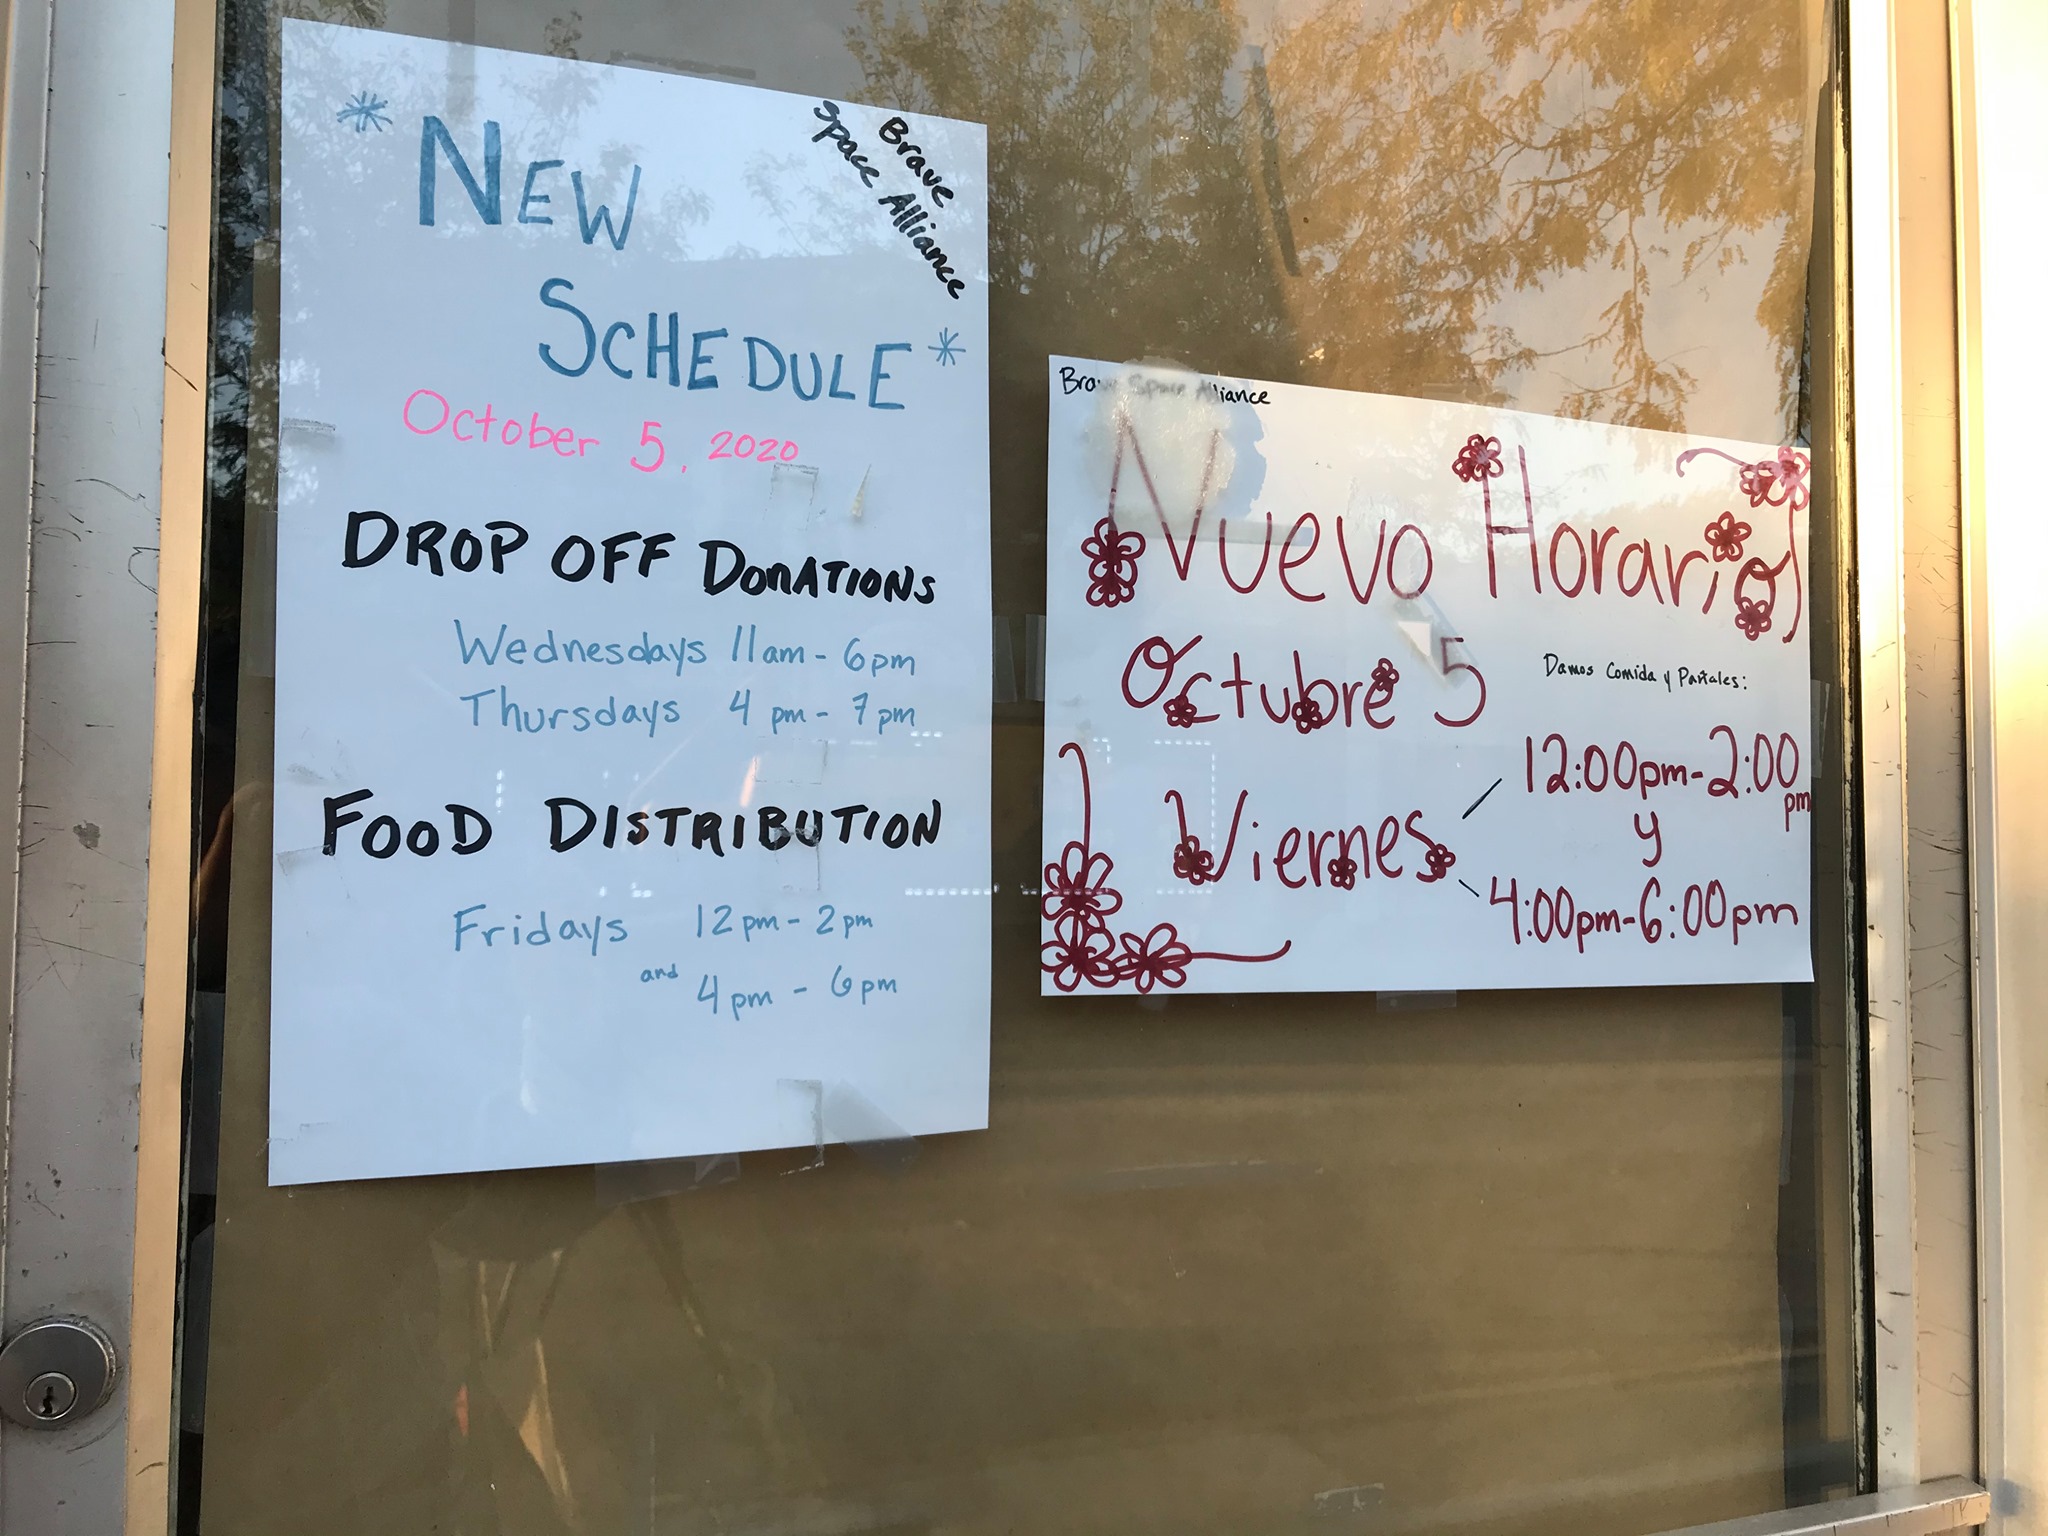 Brave
Space Alliance
* NEW
SCHEDULE *
October 5, 2020
DROP OFF DONATIONS
Wednesdays 11am - 6pm
Thursdays 4 pm - 7 pm
FOOD DISTRIBUTION
Fridays 12 pm - 2 pm
and 4 pm - 6 pm
Brave Space Alliance
Nuevo Horario
Octubre 5
Damos Comida y Pañales:
Viernes
12:00pm-2:00 pm
y
4:00pm-6:00pm